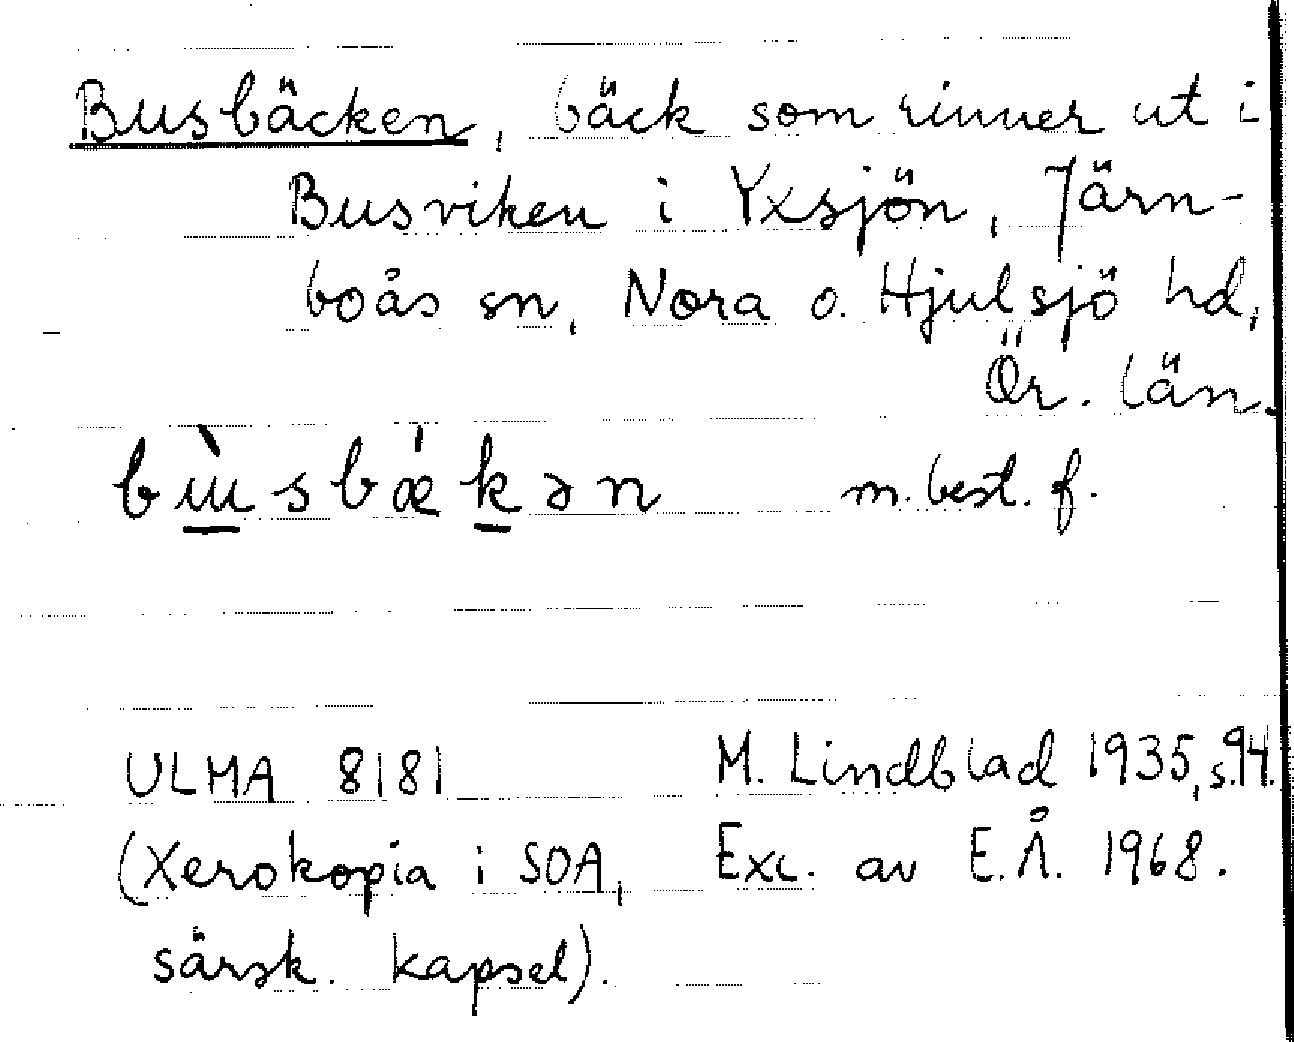 Busbäcken, bäck som rinner ut i
Busviken i Yxsjön, Järn-
boås sn, Nora o. Hjulsjö hd,
Ör. län.
bɯ̀sbǽkən m. best. f.
ULMA 8181 M. Lindblad 1935, s. 94.
(Xerokopia i SOA, Exc. av E.Å. 1968.
särsk. kapsel).